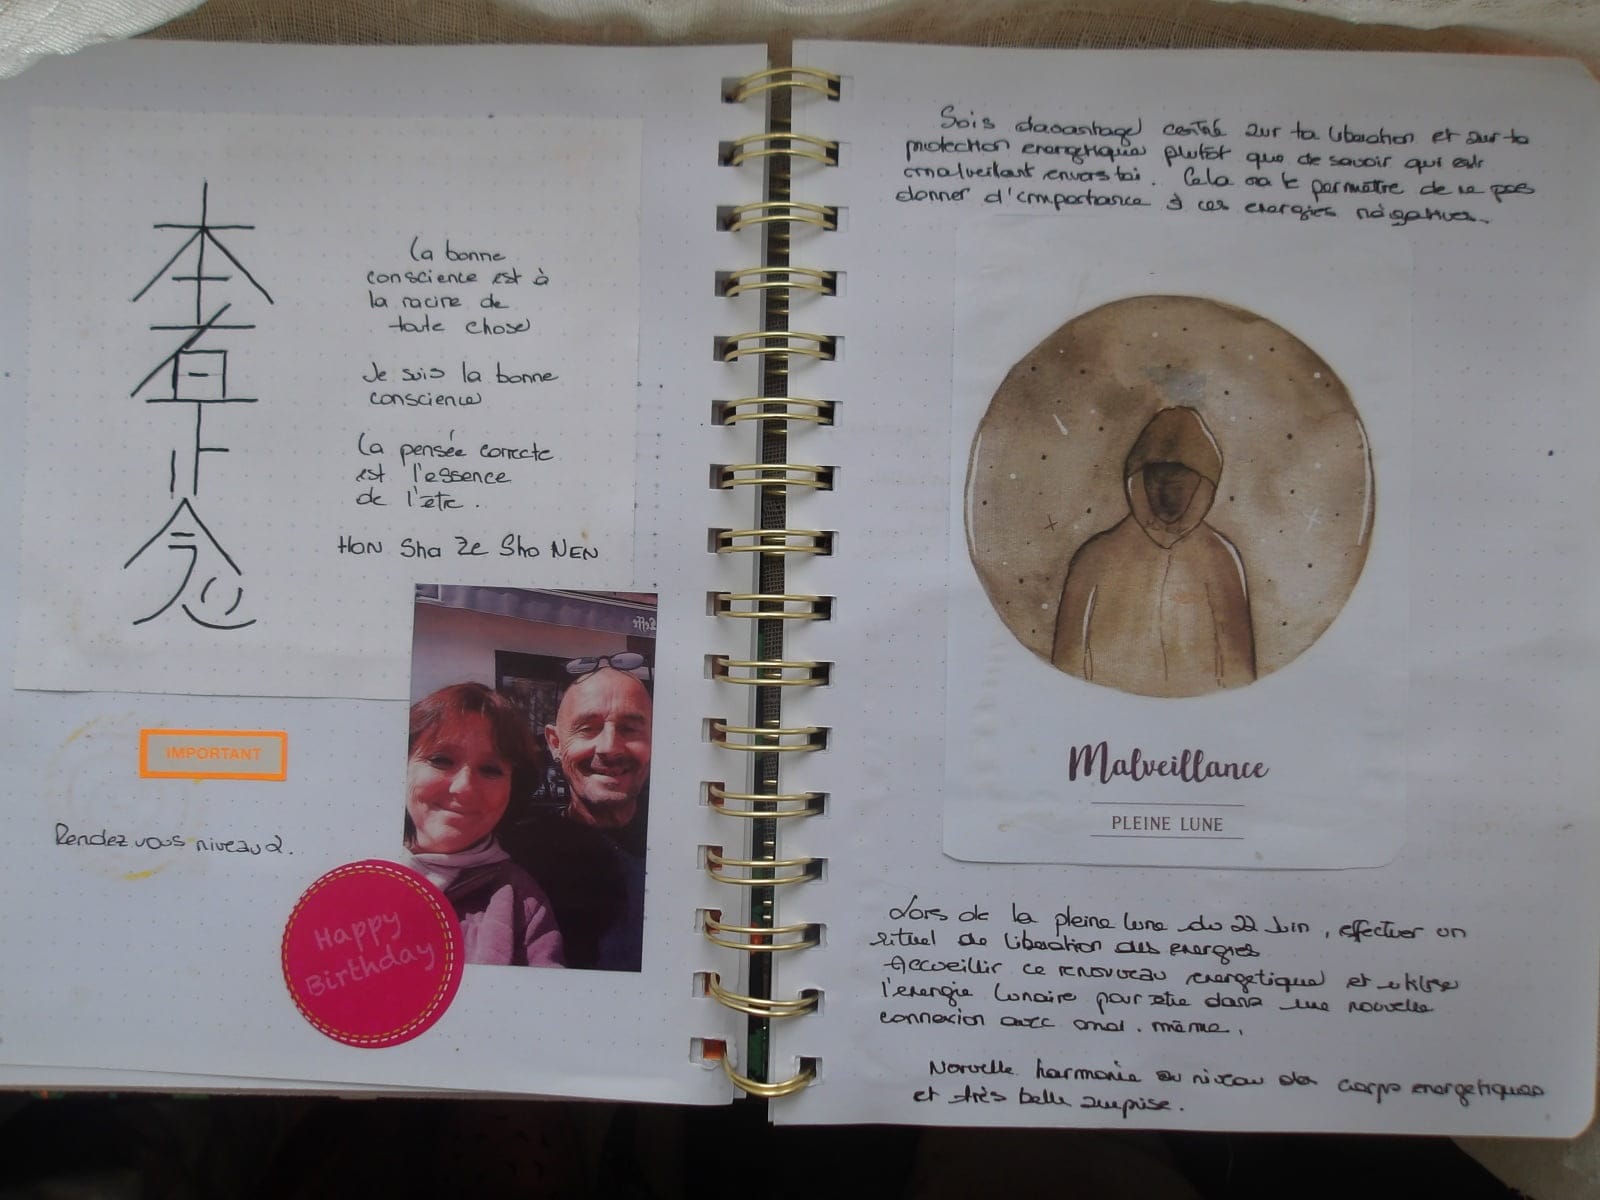 本
者
是
正
念
La bonne
conscience est à
la racine de
toute chose
Je suis la bonne
conscience
La pensée correcte
est l'essence
de l'être.
HON Sha Ze Sho NEN
Leffe
IMPORTANT
Rendez vous niveau 2.
Happy
Birthday
Sois davantage centré sur ta liberation et sur ta
protection energetique plutôt que de savoir qui est
malveillant envers toi. Cela va te permettre de ne pas
donner d'importance à ces energies négatives.
Malveillance
PLEINE LUNE
Lors de la pleine lune du 22 Juin, effectuer un
rituel de liberation des energies
Accueillir ce renouveau energetique et utiliser
l'energie lunaire pour etre dans une nouvelle
connexion avec moi.même.
Nouvelle harmonie au niveau des corps energetiques
et très belle surprise.